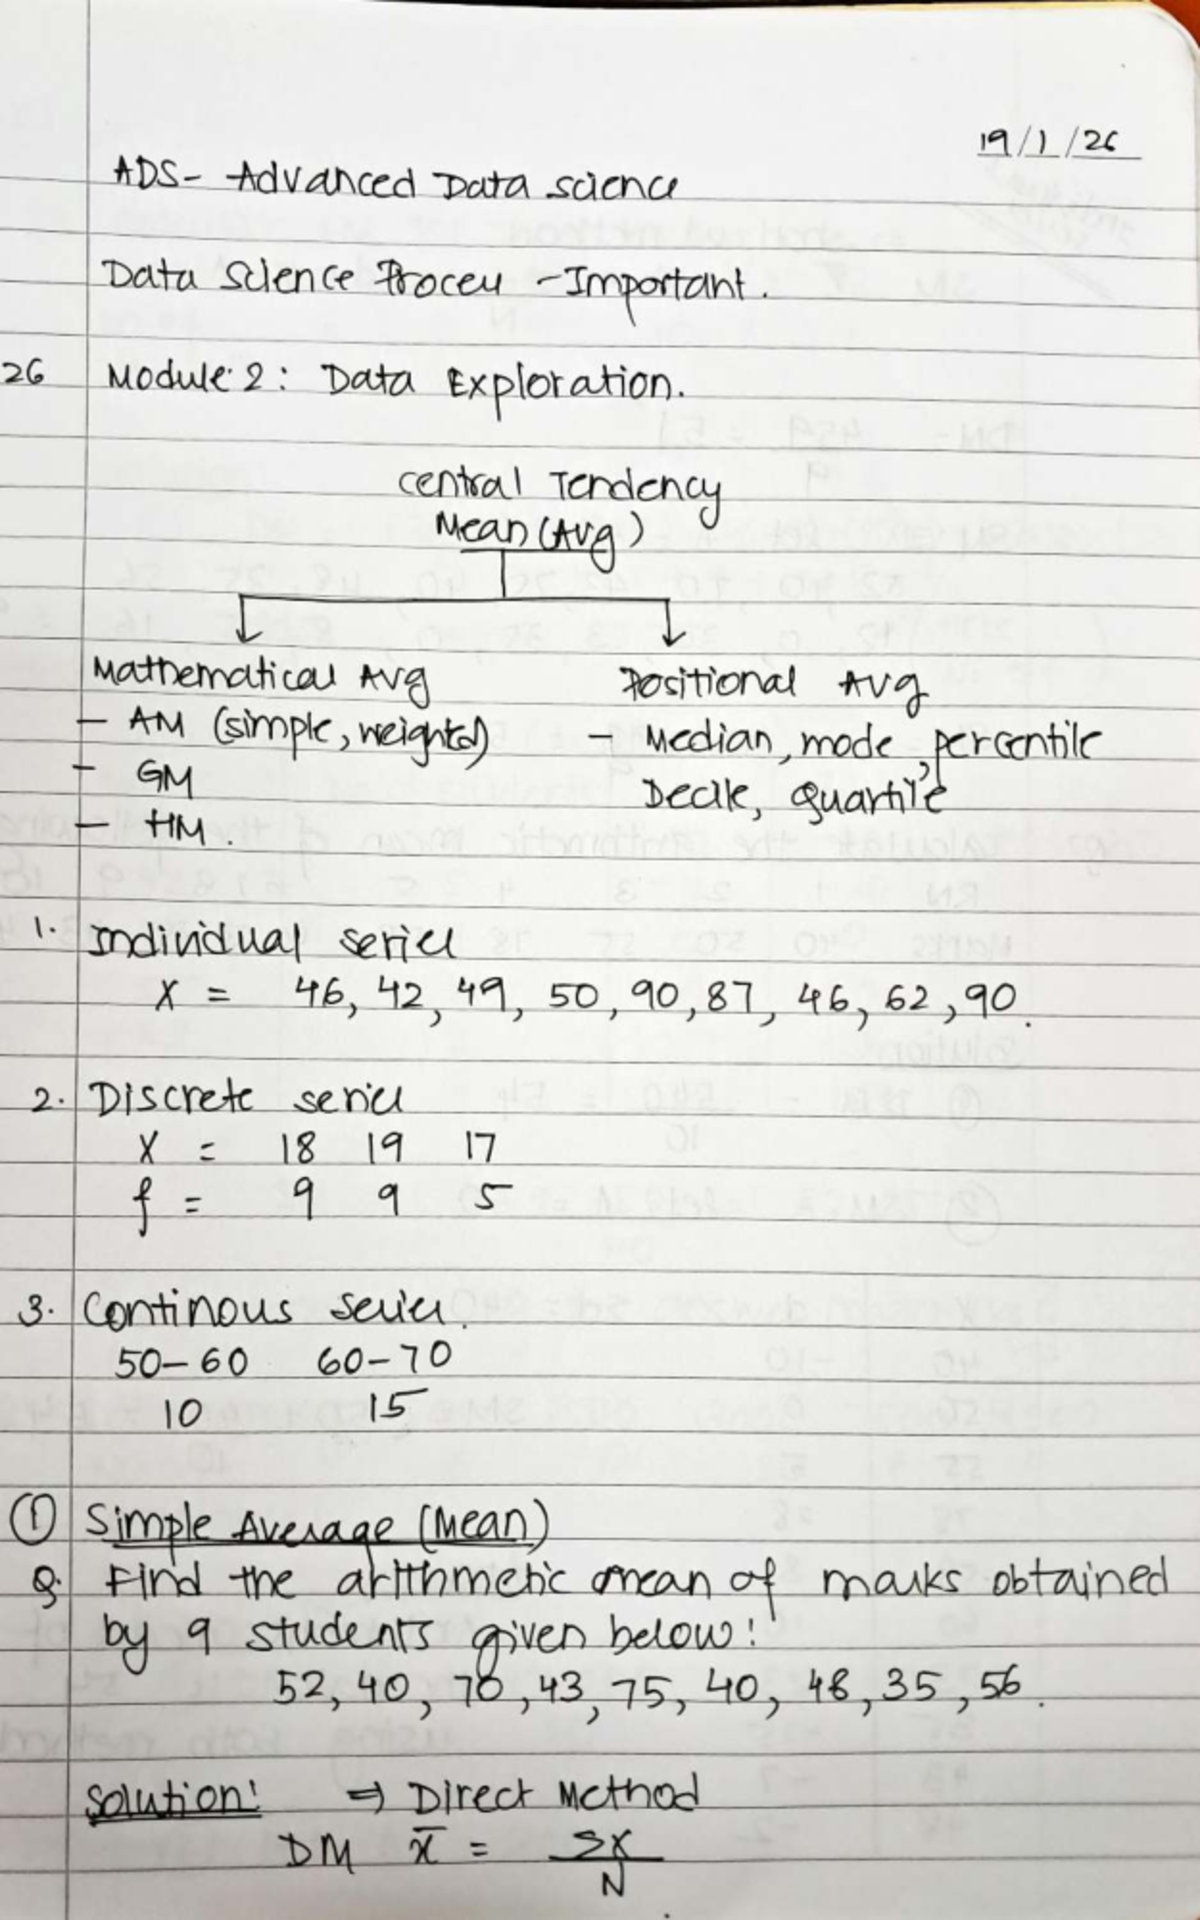 19/1/26
ADS- Advanced Data science
Data Science Process - Important.
26 Module 2: Data Exploration.
central Tendency
Mean (Avg)
Mathematical Avg    Positional Avg
- AM (simple, weighted)    - Median, mode, percentile
- GM    Decile, quartile
- HM.
1. Individual series
X = 46, 42, 49, 50, 90, 87, 46, 62, 90.
2. Discrete series
X = 18 19 17
f = 9 9 5
3. Continous series.
50-60 60-70
10 15
① Simple Average (Mean)
Q. Find the arithmetic mean of marks obtained
by 9 students given below:
52, 40, 70, 43, 75, 40, 48, 35, 56.
Solution: ⇒ Direct Method
DM x̄ = ΣX
N